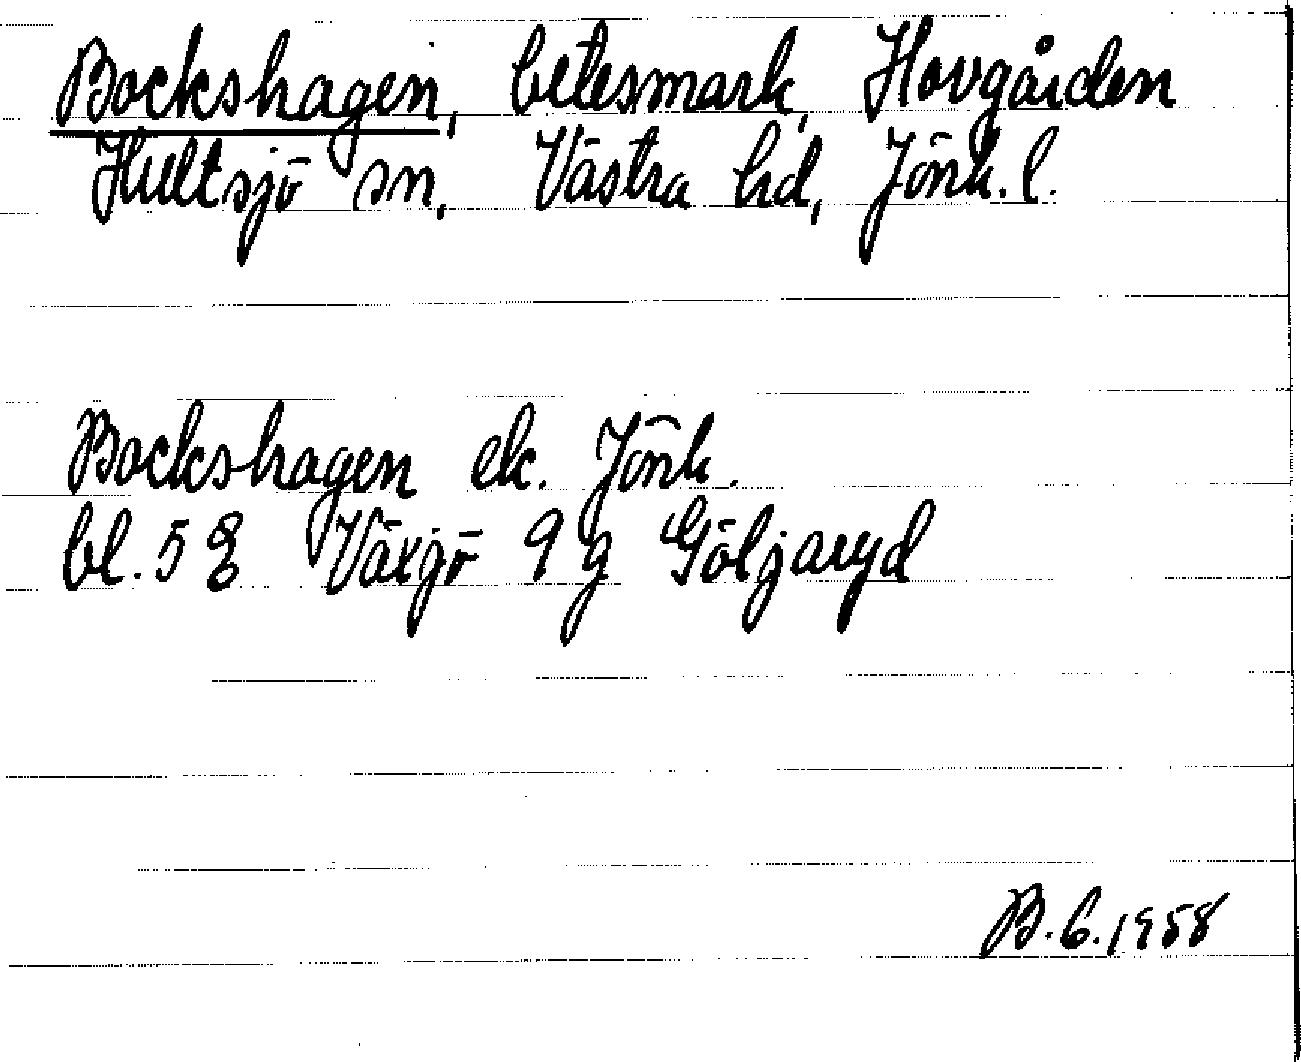 Bockshagen, betesmark, Hovgården
Hultsjö sn, Västra hd, Jönk. l.
Bockshagen ek. Jönk.
bl. 5 8 Växjö 9 g Göljaryd
B.G.1958